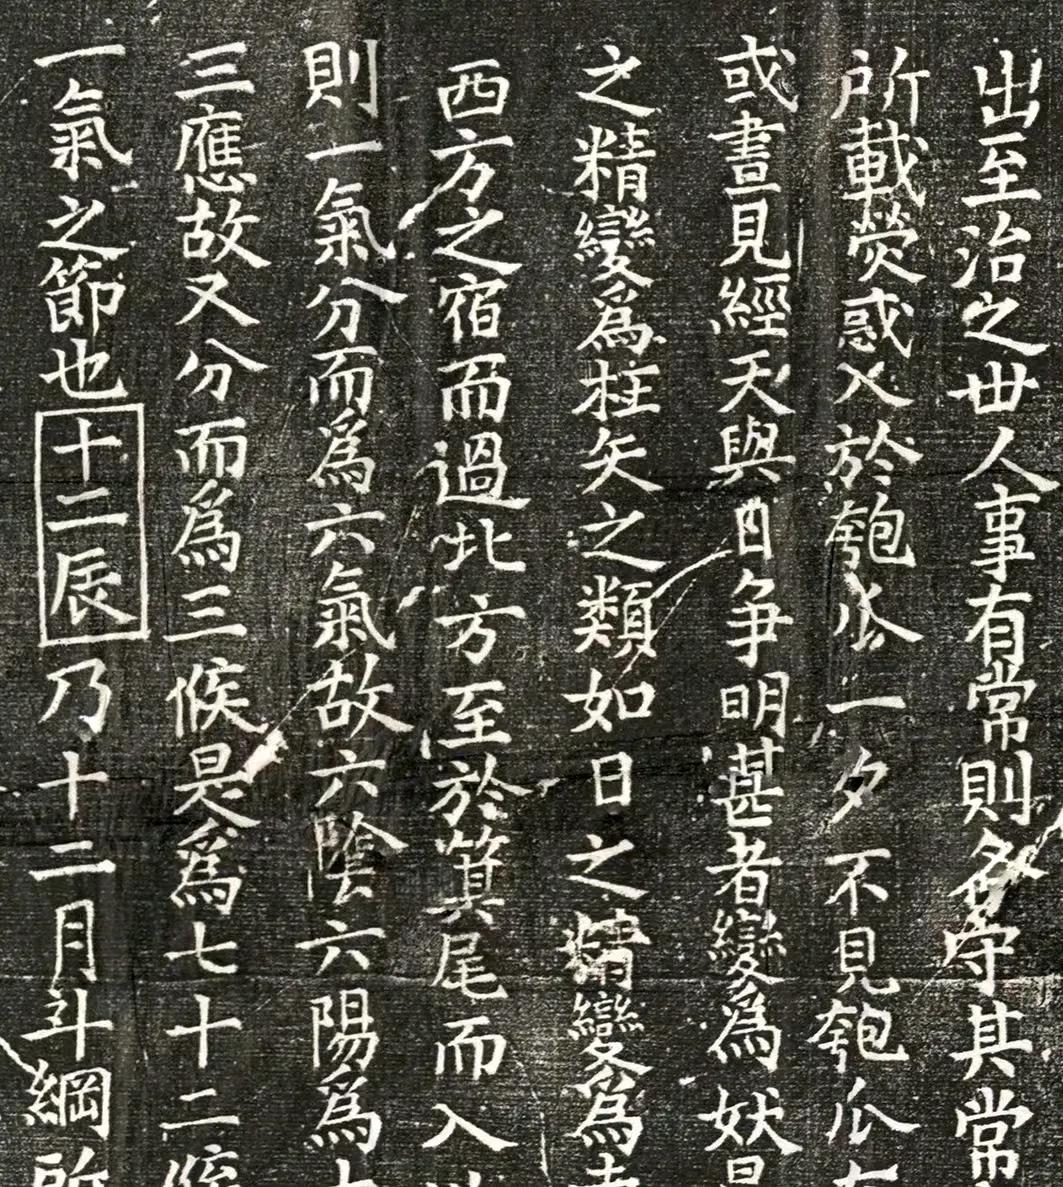 出至治之世人事有常則各守其常
所載熒惑入於匏瓜一夕不見匏瓜
或晝見經天與日争明甚者變爲妖
之精變爲枉矢之類如日之精變爲
西方之宿而過北方至於箕尾而入
則一氣分而爲六氣故六陰六陽爲
三應故又分而爲三候是爲七十二候
一氣之節也十二辰乃十二月斗綱所